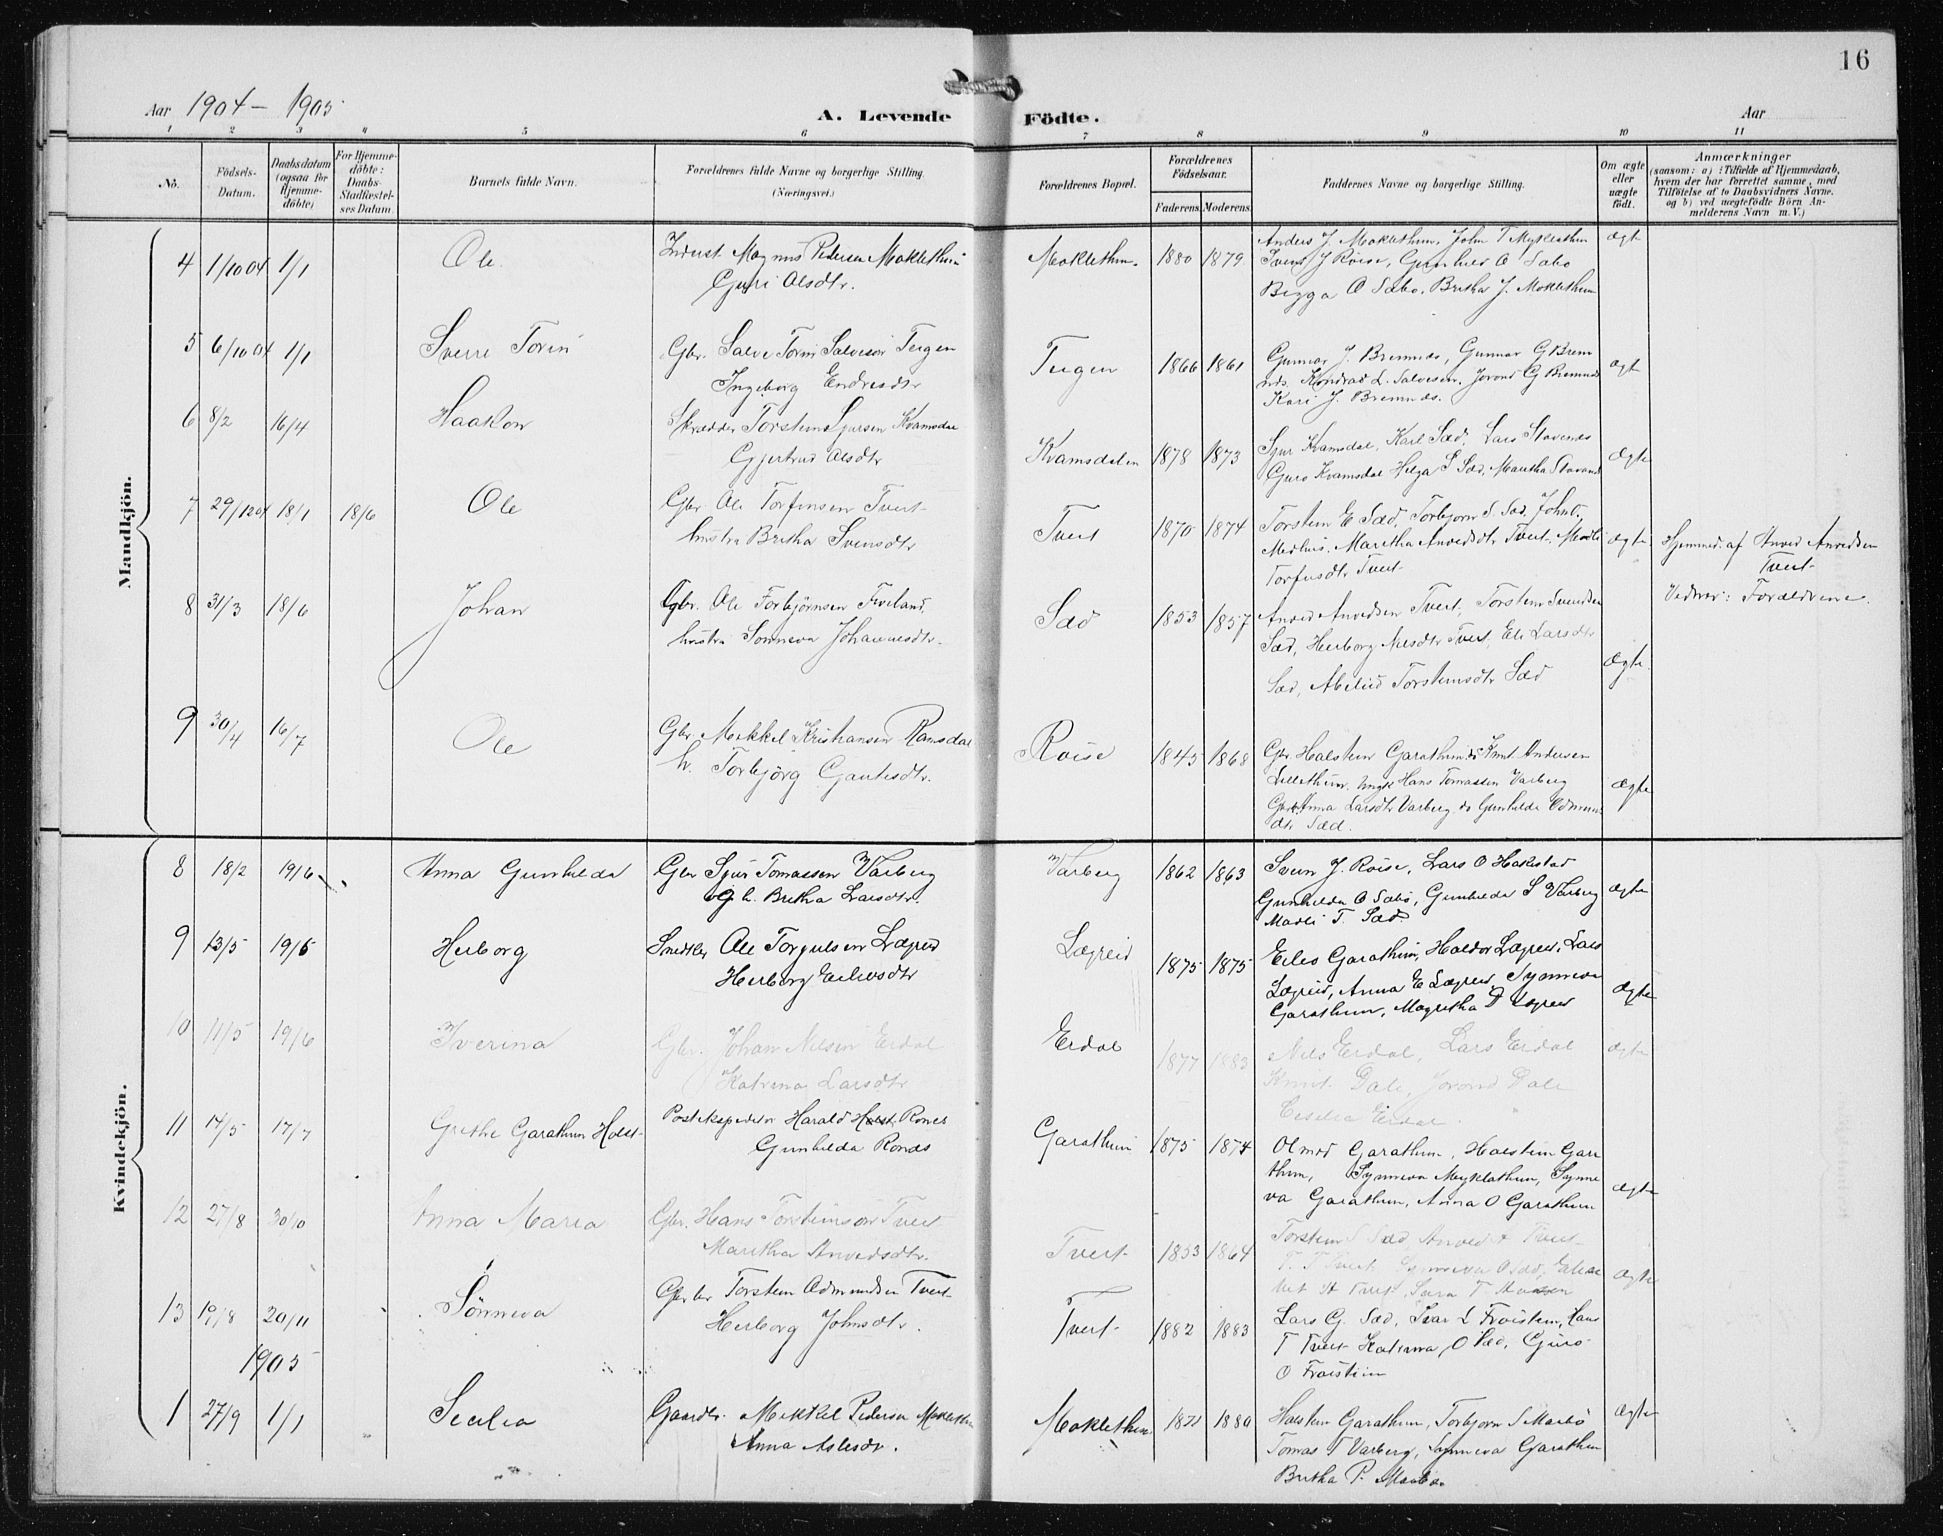 16
Aar 1904 - 1905
A. Levende Födte.
Aar
1 2 3 4 5 6 7 8 9 10 11
No.
Födsels-
Datum.
Daabsdatum
(ogsaa for
Hjemme-
döbte)
For Hjemme-
döbte:
Daabs-
Stadfæstel-
ses Datum
Barnets fulde Navn.
Forældrenes fulde Navne og borgerlige Stilling.
(Næringsvei.)
Forældrenes Bopæl.
Forældrenes
Födselsaar.
Faderens Moderens
Faddernes Navne og borgerlige Stilling.
Om ægte
eller
uægte
födt.
Anmærkninger
(saasom: a) i Tilfælde af Hjemmedaab,
hvem der har forrettet samme, med
Tilföielse af to Daabsvidners Navne,
og b) ved uægtefödte Börn An-
melderens Navn m. V.)
Mandkjön.
4 1/10 04 1/1 Ole. Magnus Pedersen Moklethun
Guri Olsdtr.
Moklethun. 1880 1879
Anders J. Moklethun, John T Myklethun
J Röise, Gunhild O Sæbo
O Sæbo. Britha J. Moklethun
ægt
5 6/10 04 1/1 Sverre Torin Gbr. Salve Torin Salvesen Teigen
Ingeborg Endresdtr
Teigen 1866 1861
Gunnar J. Bremnes, Gunnar G Brem
nes. Kondrad L. Salvesen. Jorond G Bremnes
Kari J. Bremnes.
ægt
6 8/2 16/4 Haakon Skrædder Torstein Sjursen Kvamsdal
Gjertrud Olsdtr
Kvamsdalen 1878 1873
Sjur Kvamsdal, Karl Sæd. Lars Stavenes
Guro Kvamsdal Helga S Sæd, Maritha Stavenes
ægte
7 29/12 04 18/1 18/6 Ole Gbr Ole Torfinsen Tveit
hustru Britha Svensdtr
Tveit 1870 1874
Torstein E Sæd, Torbjorn S Sæd, John O.
Medhus. Maritha Anvedsdtr Tveit. Madli
Torfinsdtr Tveit
ægte
Hjemmed. af Anved Anvedsen
Tveit
Vidner: Forældrene.
8 31/3 18/6 Johan Gbr. Ole Torbjörnsen
hustru Sönneva Johannesdtr.
Sæd 1853 1857
Anved Anvedsen Tveit, Torstein Svendsen
Sæd, Herborg Nilsdtr Tveit, Eli Larsdtr
Sæd, Torsteinsdtr Sæd
Ægte.
9 30/4 16/7 Ole Gbr. Mikkel Kristiansen Ramsdal
h. Torbjörg Gautesdtr.
Röise 1845 1868
Gbr. Halstein Garathun, ds Knut Andersen
Lillethun. Ungk Hans Tomassen Varberg
Anna Larsdtr Varberg ds Gunhilde Odmun
dtr Sæd.
Ægte
Kvindekjön.
8 18/2 19/6 Anna Gunhilda Gbr Sjur Tomassen Varberg
h. Britha Larsdtr.
Varberg 1862 1863
Svein J. Röise, Lars O Hakestad
Gunhilda O Sæbö, Gunhilda S Varberg
Madli T. Sæd.
ægte
9 13/5 19/6 Herborg Ole Torgilsen Lægreid
Herborg Eilevsdtr
Lægreid 1875 1875
Eilev Garathun, Haldor Lægreid, Lars
Lægreid, Anna E Lægreid, Synneva
Garathun, Magretha Lægreid
ægte
10 11/5 19/6 Iverina Gbr. Johan Nilsen Erdal
Katrina Larsdtr
Erdal 1877 1883
Nils Erdal, Lars Erdal
Knut Dale, Jorond Dale
Cecilia Erdal.
ægte
11 14/5 17/7 Grethe Garathun Holst Postekspeditör Harald Holst Ronæs
Gunhilda Ronæs
Garathun 1875 1874
Olmod Garathun, Halstein Gara
thun, Synneva Myklathun, Synne
va Garathun, Anna O Garathun
ægte
12 27/8 30/10 Anna Maria Gbr. Hans Torsteinsön Tveit
Maritha Anvedsdtr.
Tveit 1853 1864
Torstein S Sæd, Anved A Tveit
T. T Tveit, Synneva O Sæd,
A Tveit, Sara T
ægte
13 19/8 20/11 Sönneva Torstein Odmundsen Tveit
Herborg Johnsdtr.
Tveit 1882 1883
Lars G. Sæd, Ivar L Fröistein, Hans
T Tveit Katrina O Sæd, Guro
O Fröistein
1905
1 27/9 1/1 Secilia Gaardbr. Mikkel Pedersen Moklethun
Anna Aslesdr.
Moklethun 1871 1880
Halstein Garathun, Torbjorn S Maabö
Tomas T Varberg, Synneva Garathun
Britha P. Maabö.
ægte